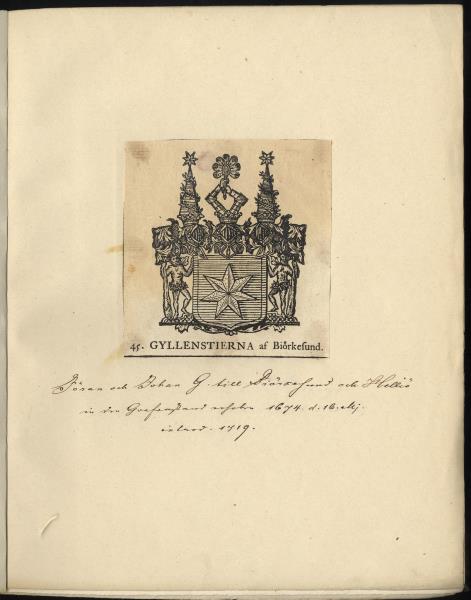 45. GYLLENSTIERNA af Biörkesund.
Göran och Johan G. till Biörkesund och Helliö
in den Grafenstand erhoben 1674. d. 16.
introd. 1719.